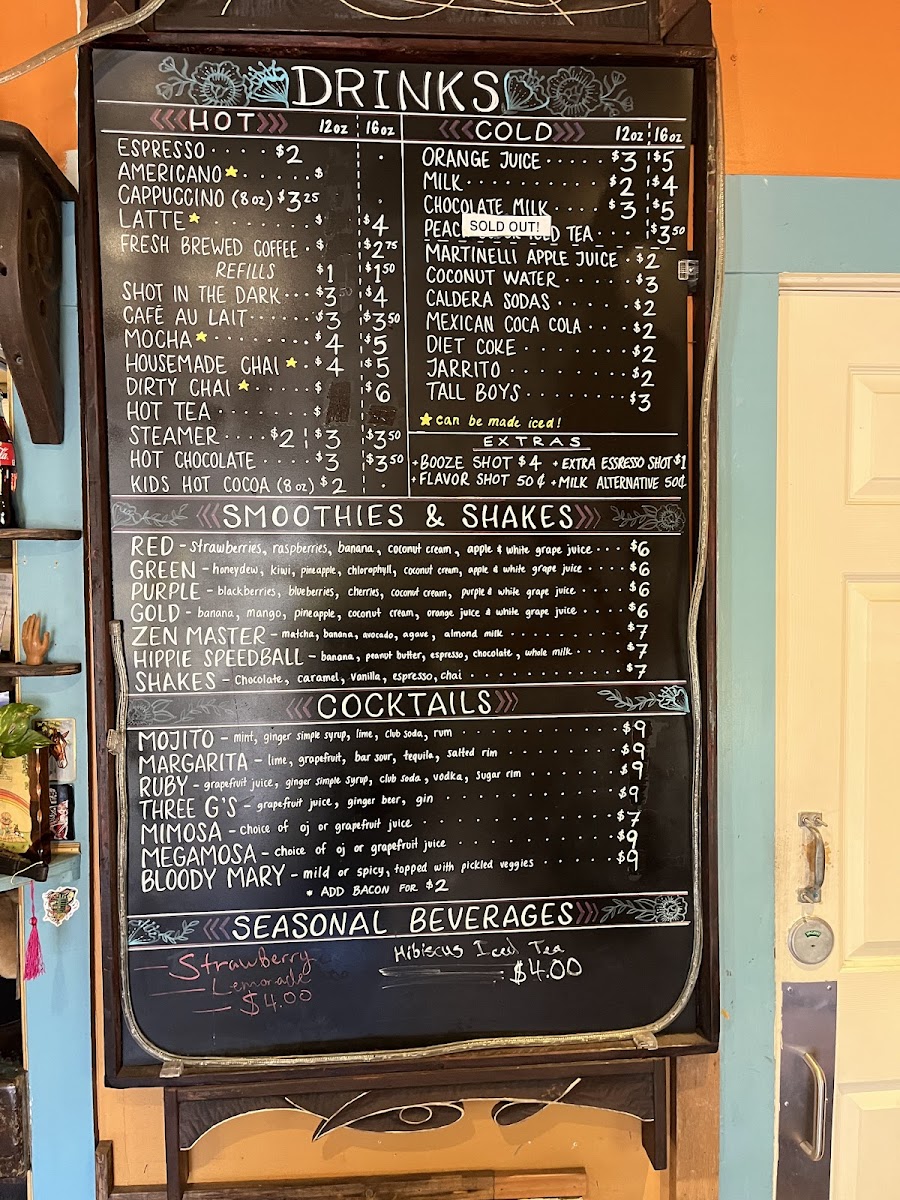 DRINKS
HOT 12oz 16oz
ESPRESSO $2
AMERICANO $
CAPPUCCINO (8 oz) $3 25
LATTE $ $4
FRESH BREWED COFFEE $ $2 75
REFILLS $1 $1 50
SHOT IN THE DARK $3 $4
CAFÉ AU LAIT $3 $3 50
MOCHA $4 $5
HOUSEMADE CHAI $4 $5
DIRTY CHAI $ $6
HOT TEA $
STEAMER $2 $3 $3 50
HOT CHOCOLATE $3 $3 50
KIDS HOT COCOA (8 oz) $2
COLD 12oz 16oz
ORANGE JUICE $3 $5
MILK $2 $4
CHOCOLATE MILK $3 $5
SOLD OUT!
TEA $3 50
MARTINELLI APPLE JUICE $2
COCONUT WATER $3
CALDERA SODAS $2
MEXICAN COCA COLA $2
DIET COKE $2
JARRITO $2
TALL BOYS $3
can be made iced!
EXTRAS
+BOOZE SHOT $4 +EXTRA ESSRESSO SHOT $1
+FLAVOR SHOT 50¢ +MILK ALTERNATIVE 50¢
SMOOTHIES & SHAKES
RED - strawberries, raspberries, banana, coconut cream, apple & white grape juice $6
GREEN - honeydew, kiwi, pineapple, chlorophyll, coconut cream, apple & white grape juice $6
PURPLE - blackberries, blueberries, cherries, coconut cream, purple & white grape juice $6
GOLD - banana, mango, pineapple, coconut cream, orange juice & white grape juice $6
ZEN MASTER - matcha, banana, avocado, agave, almond milk $7
HIPPIE SPEEDBALL - banana, peanut butter, espresso, chocolate, whole milk $7
SHAKES - Chocolate, caramel, vanilla, espresso, chai $7
COCKTAILS
MOJITO - mint, ginger simple syrup, lime, club soda, rum $9
MARGARITA - lime, grapefruit, bar sour, tequila, salted rim $9
RUBY - grapefruit juice, ginger simple syrup, club soda, vodka, sugar rim $9
THREE G'S - grapefruit juice, ginger beer, gin $9
MIMOSA - choice of oj or grapefruit juice $7
MEGAMOSA - choice of oj or grapefruit juice $9
BLOODY MARY - mild or spicy, topped with pickled veggies $9
* ADD BACON FOR $2
SEASONAL BEVERAGES
Strawberry
Lemonade
$4.00
Hibiscus Iced Tea
$4.00